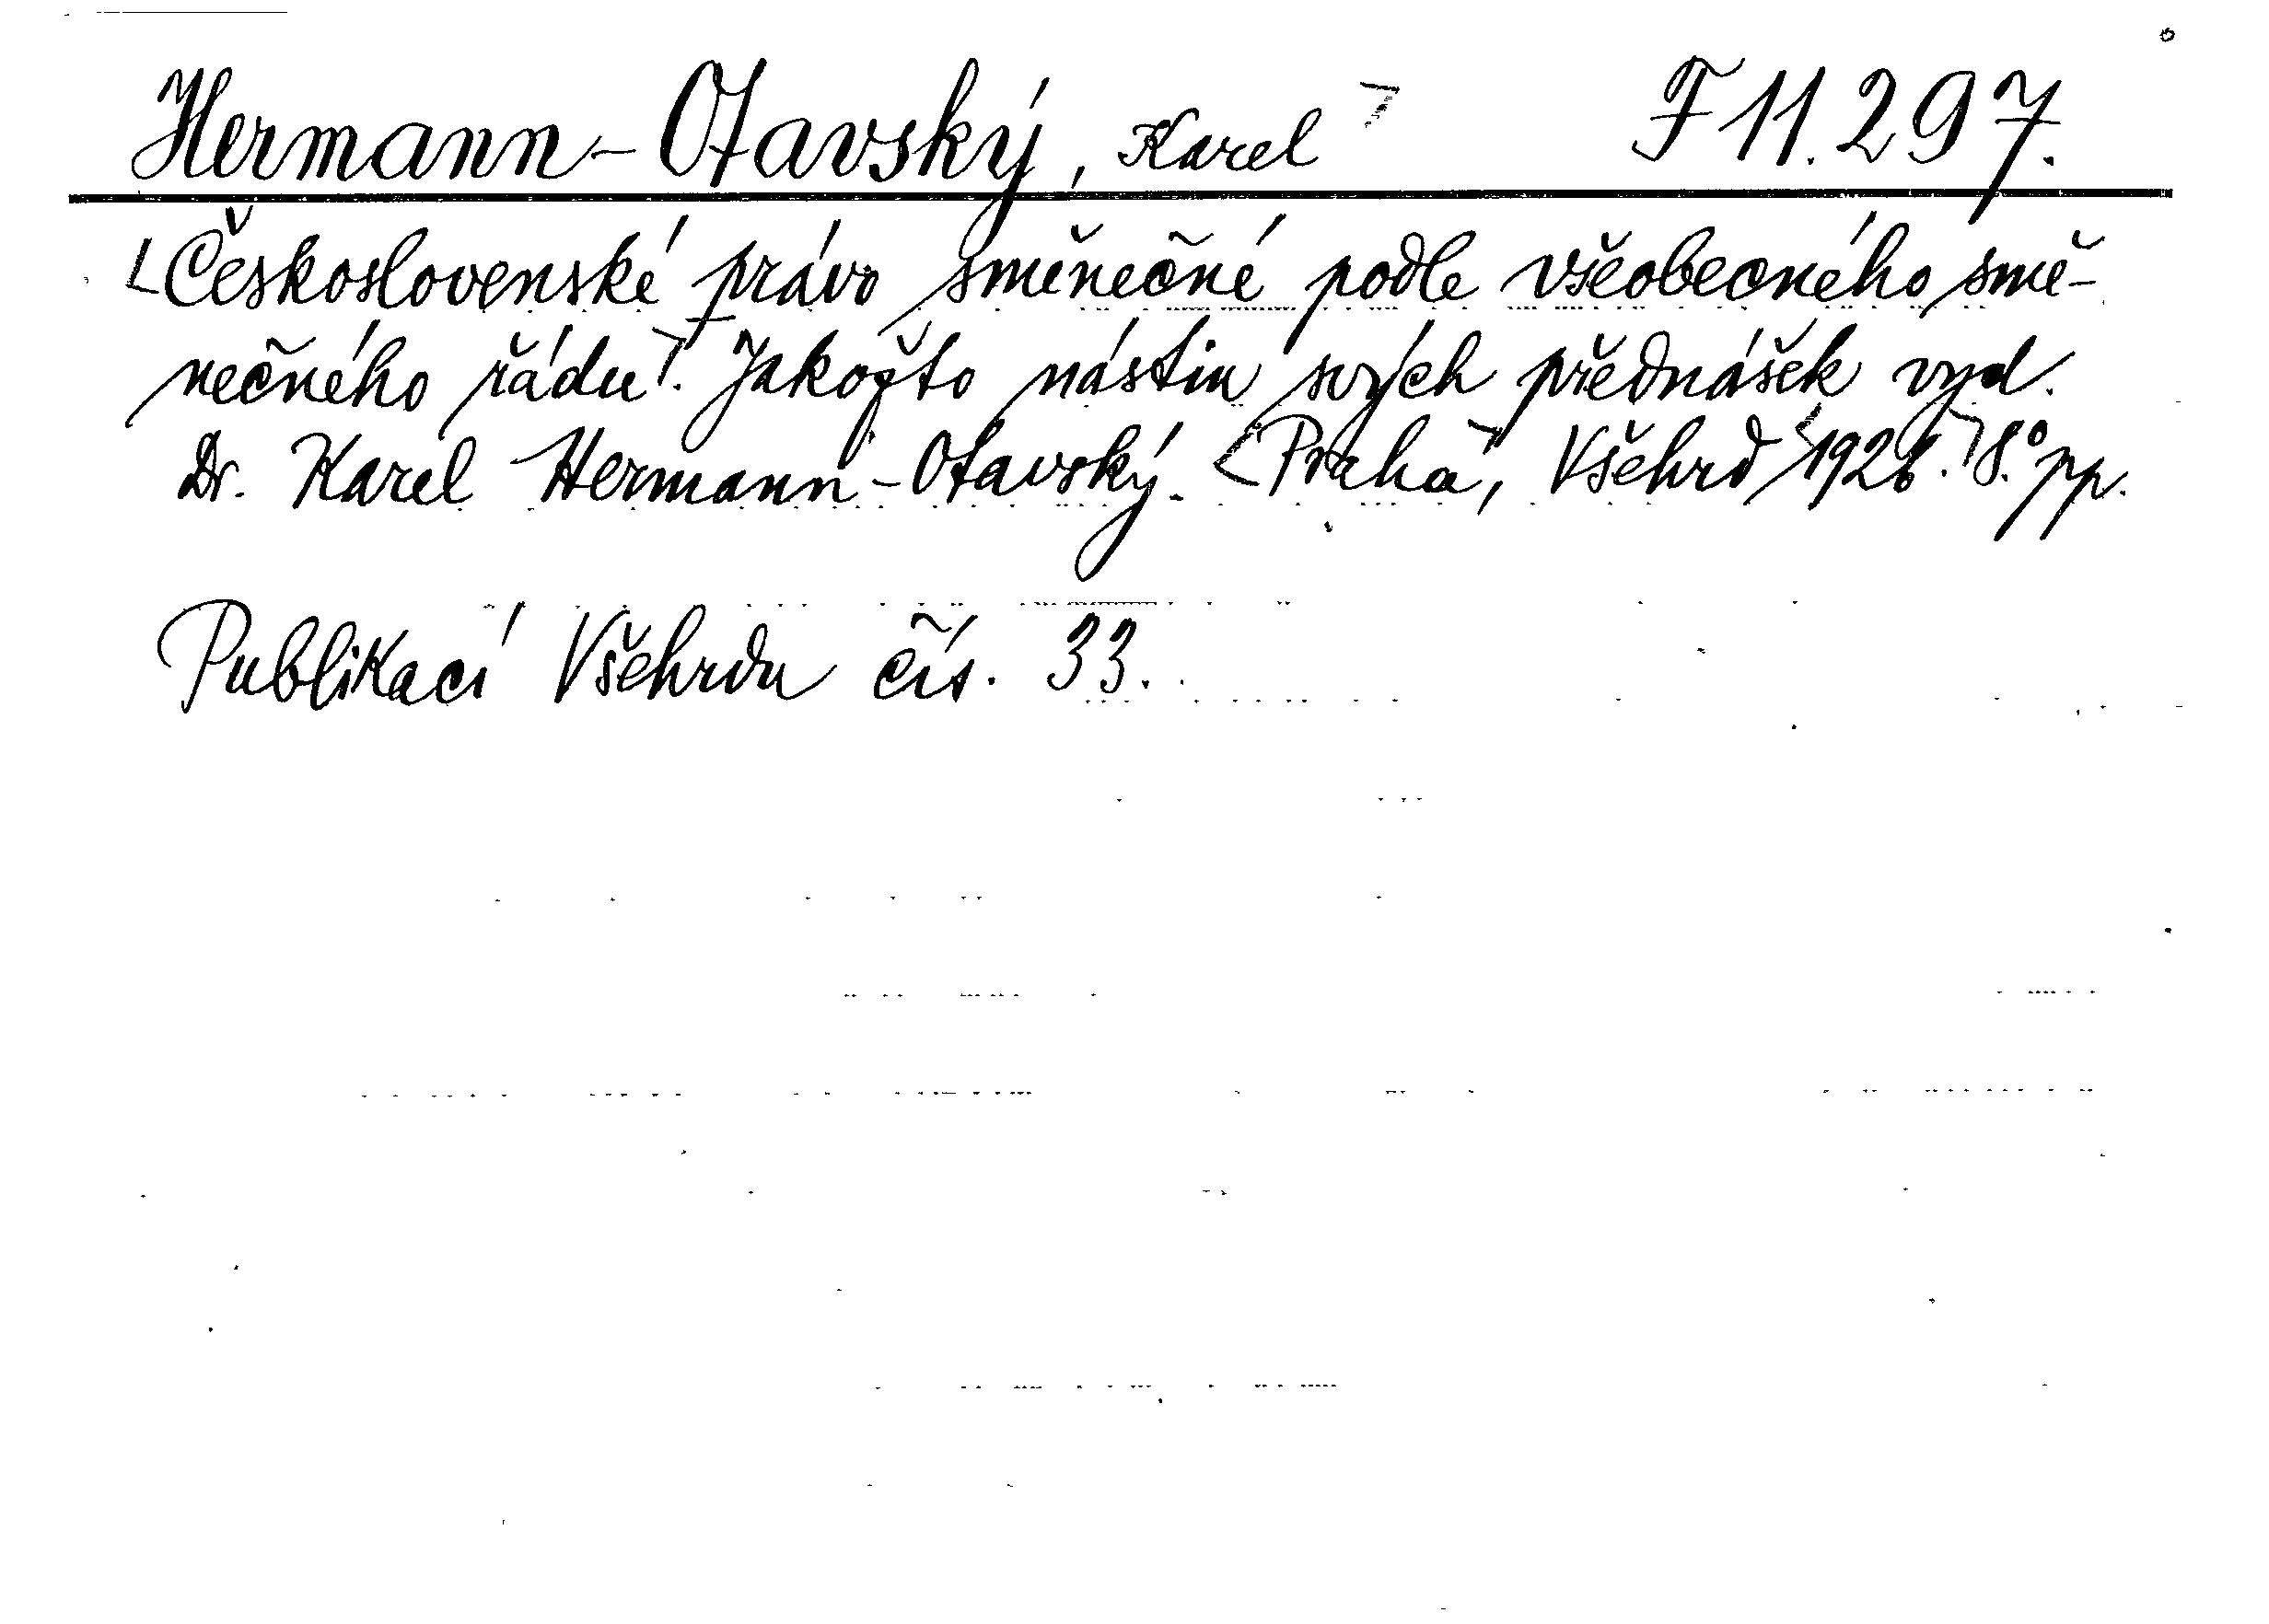 Hermann-Otavský, Karel F 11.297.
Československé právo směnečné podle všeobecného smě-
nečného řádu. Jakožto nástin svých přednášek vyd.
Dr. Karel Hermann-Otavský. Praha, Všehrd 1926. 8° pp.
Publikací Všehrdu čís. 33.